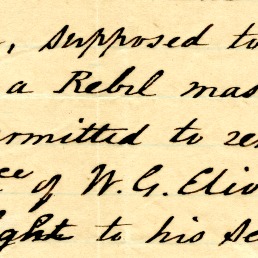 , supposed to
a Rebel mas
ermitted to re
ce of W. G. Elio
ight to his se